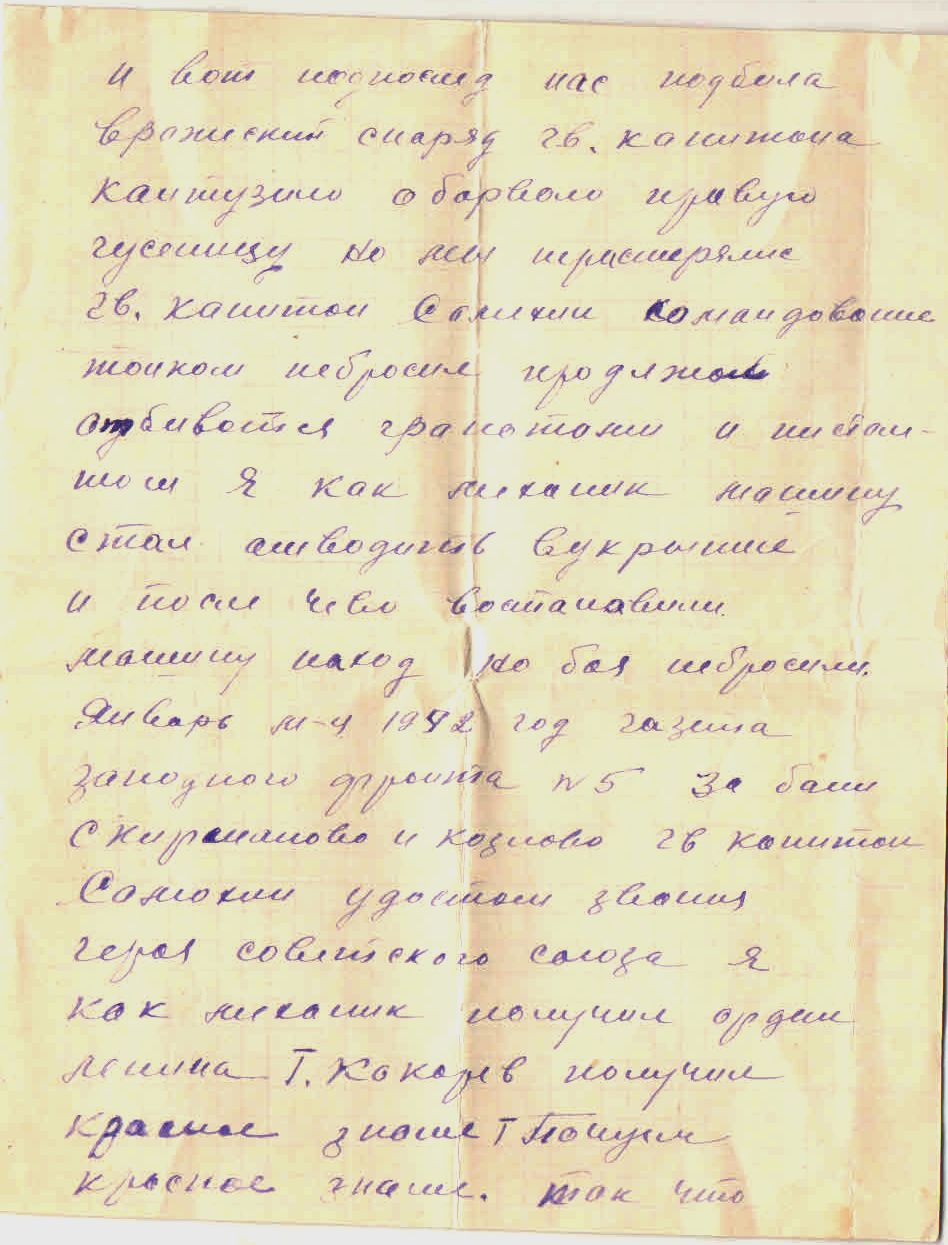 и вот подпослед нас подбила
вражиский снаряд гв. капитана
кантузило оборвало правую
гусеницу но мы
гв. капитан Самохин командование
танком небросил продлжал
отбиватся гранатами и пистал-
том Я как миханик машину
стал атводить вукрытие
и после чево востанавили
машину наход но боя небросили.
Январь м-ц 1942 год газета
западного фронта N5 За баи
Скирманово и козлово гв капитан
Самохин удостоен звания
героя советского союза я
как миханик получил ордин
ленина Т. Какорев получил
красное знаме Т
красное знаме. так что